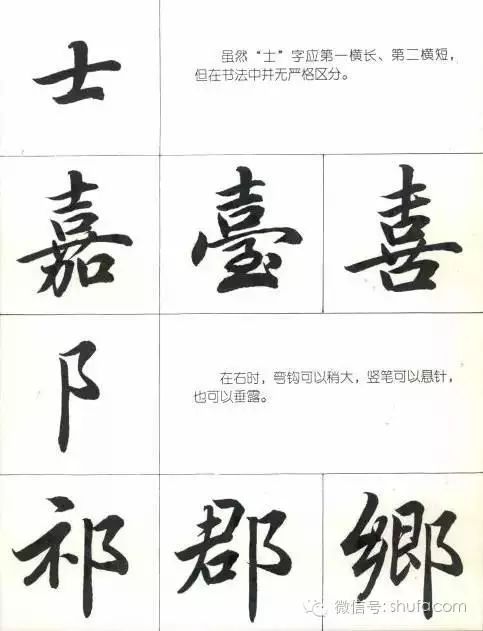 士
虽然“士”字应第一横长、第二横短，
但在书法中并无严格区分。
嘉 臺 喜
阝
在右时，弯钩可以稍大，竖笔可以悬针，
也可以垂露。
祁 郡 鄉
微信号: shufacom